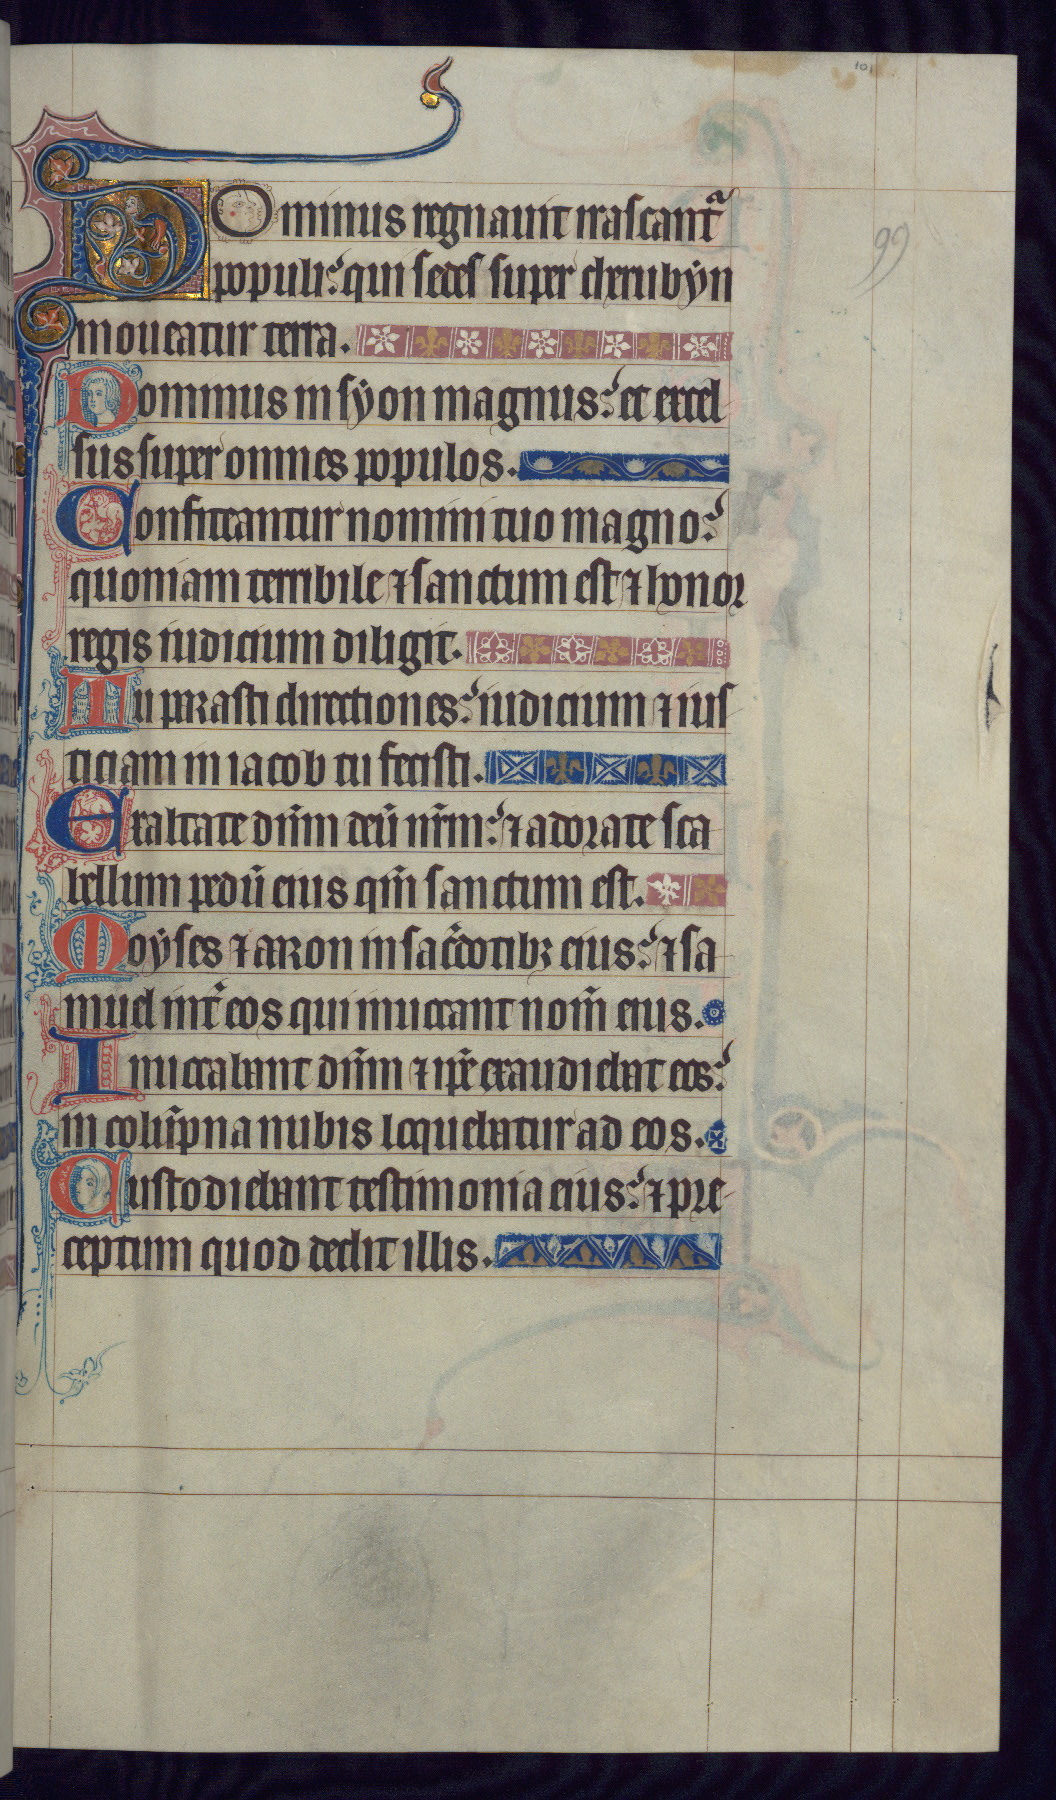 101
Dominus regnauit irascantᵃ
populi: qui sedes super cherubyn
moueatur terra.
99
Dominus in syon magnus: et excel
sus super omnes populos.
Confiteantur nomini tuo magno:
quoniam terribile ⁊ sanctum est ⁊ honor
regis iudicium diligit.
Tu parasti directiones: iudicium ⁊ ius
ticiam in iacob tu fecisti.
Exaltate dn̄m deū nr̄m: ⁊ adorate sca
bellum pedū eius qm̄ sanctum est.
Moyses ⁊ aaron in sac̄dotibꝫ eius: ⁊ sa
muel int̾ eos qui inuocant nom̄ eius.
Inuocabant dn̄m ⁊ ip̄e exaudiebat eos:
in colūpna nubis loquebatur ad eos.
Custodiebant testimonia eius: ⁊ pre
ceptum quod dedit illis.